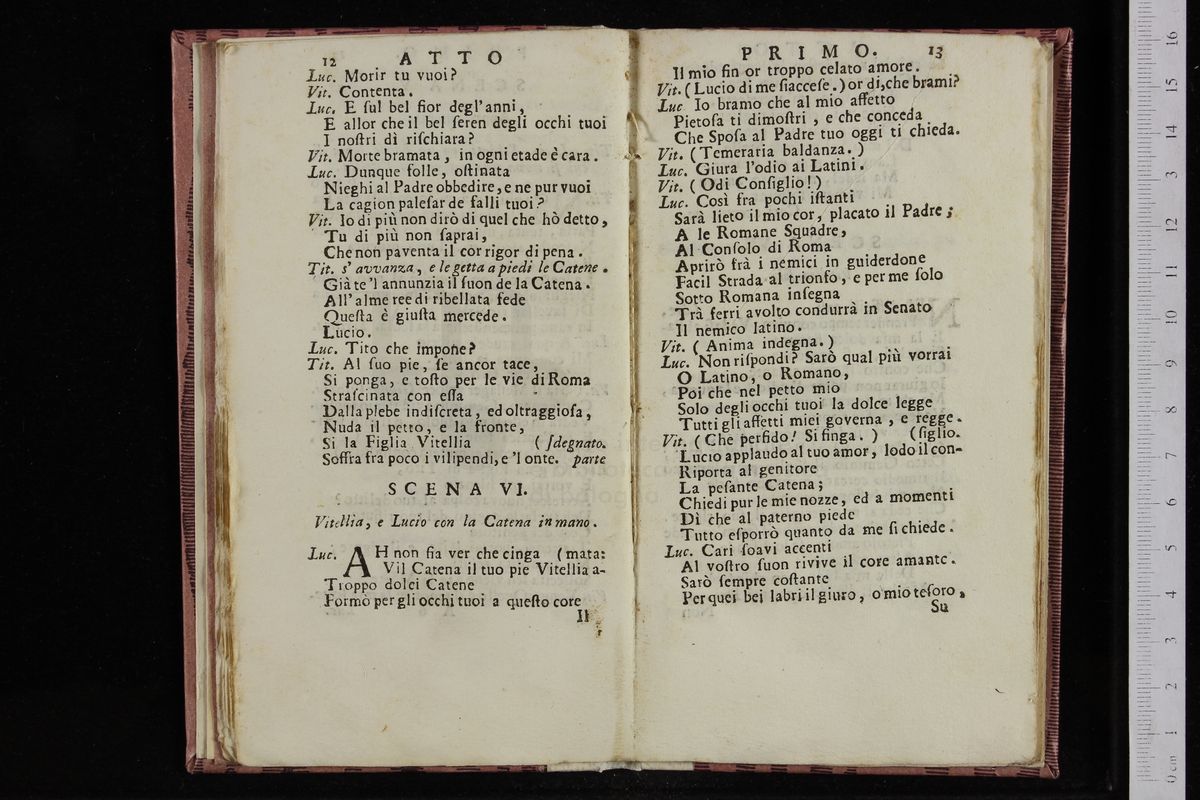 12 ATTO
Luc. Morir tu vuoi?
Vit. Contenta.
Luc. E ſul bel fior degl'anni,
E allor che il bel ſeren degli occhi tuoi
I noſtri dì riſchiara?
Vit. Morte bramata, in ogni etade è cara.
Luc. Dunque folle, oſtinata
Nieghi al Padre obbedire, e ne pur vuoi
La cagion paleſar de falli tuoi?
Vit. Io di più non dirò di quel che hò detto,
Tu di più non ſaprai,
Che non paventa il cor rigor di pena.
Tit. s'avvanza, e le getta a piedi le Catene.
Già te'l annunzia il ſuon de la Catena.
All'alme ree di ribellata fede
Queſta è giuſta mercede.
Lucio.
Luc. Tito che impone?
Tit. Al ſuo pie, ſe ancor tace,
Si ponga, e toſto per le vie di Roma
Straſcinata con eſſa
Dalla plebe indiſcreta, ed oltraggioſa,
Nuda il petto, e la fronte,
Si la Figlia Vitellia (ſdegnato.
Soffra fra poco i vilipendi, e 'l onte. parte
SCENA VI.
Vitellia, e Lucio con la Catena in mano.
Luc. AH non fia ver che cinga (mata:
Vil Catena il tuo pie Vitellia a-
Troppo dolci Catene
Formò per gli occhi tuoi a queſto core
Il
PRIMO. 13
Il mio fin or troppo celato amore.
Vit. (Lucio di me ſi acceſe.) or dì, che brami?
Luc Io bramo che al mio affetto
Pietoſa ti dimoſtri, e che conceda
Che Spoſa al Padre tuo oggi ti chieda.
Vit. (Temeraria baldanza.)
Luc. Giura l'odio ai Latini.
Vit. (Odi Conſiglio!)
Luc. Così fra pochi iſtanti
Sarà lieto il mio cor, placato il Padre;
A le Romane Squadre,
Al Conſolo di Roma
Aprirò frà i nemici in guiderdone
Facil Strada al trionfo, e per me ſolo
Sotto Romana inſegna
Trà ferri avolto condurrà in Senato
Il nemico latino.
Vit. (Anima indegna.)
Luc. Non riſpondi? Sarò qual più vorrai
O Latino, o Romano,
Poi che nel petto mio
Solo degli occhi tuoi la dolce legge
Tutti gli affetti miei governa, e regge.
Vit. (Che perfido! Si finga.) (ſiglio.
Lucio applaudo al tuo amor, lodo il con-
Riporta al genitore
La peſante Catena;
Chiedi pur le mie nozze, ed a momenti
Dì che al paterno piede
Tutto eſporrò quanto da me ſi chiede.
Luc. Cari ſoavi accenti
Al voſtro ſuon rivive il core amante.
Sarò ſempre coſtante
Per quei bei labri il giuro, o mio teſoro,
Su
0 cm 1 2 3 4 5 6 7 8 9 10 11 12 13 14 15 16